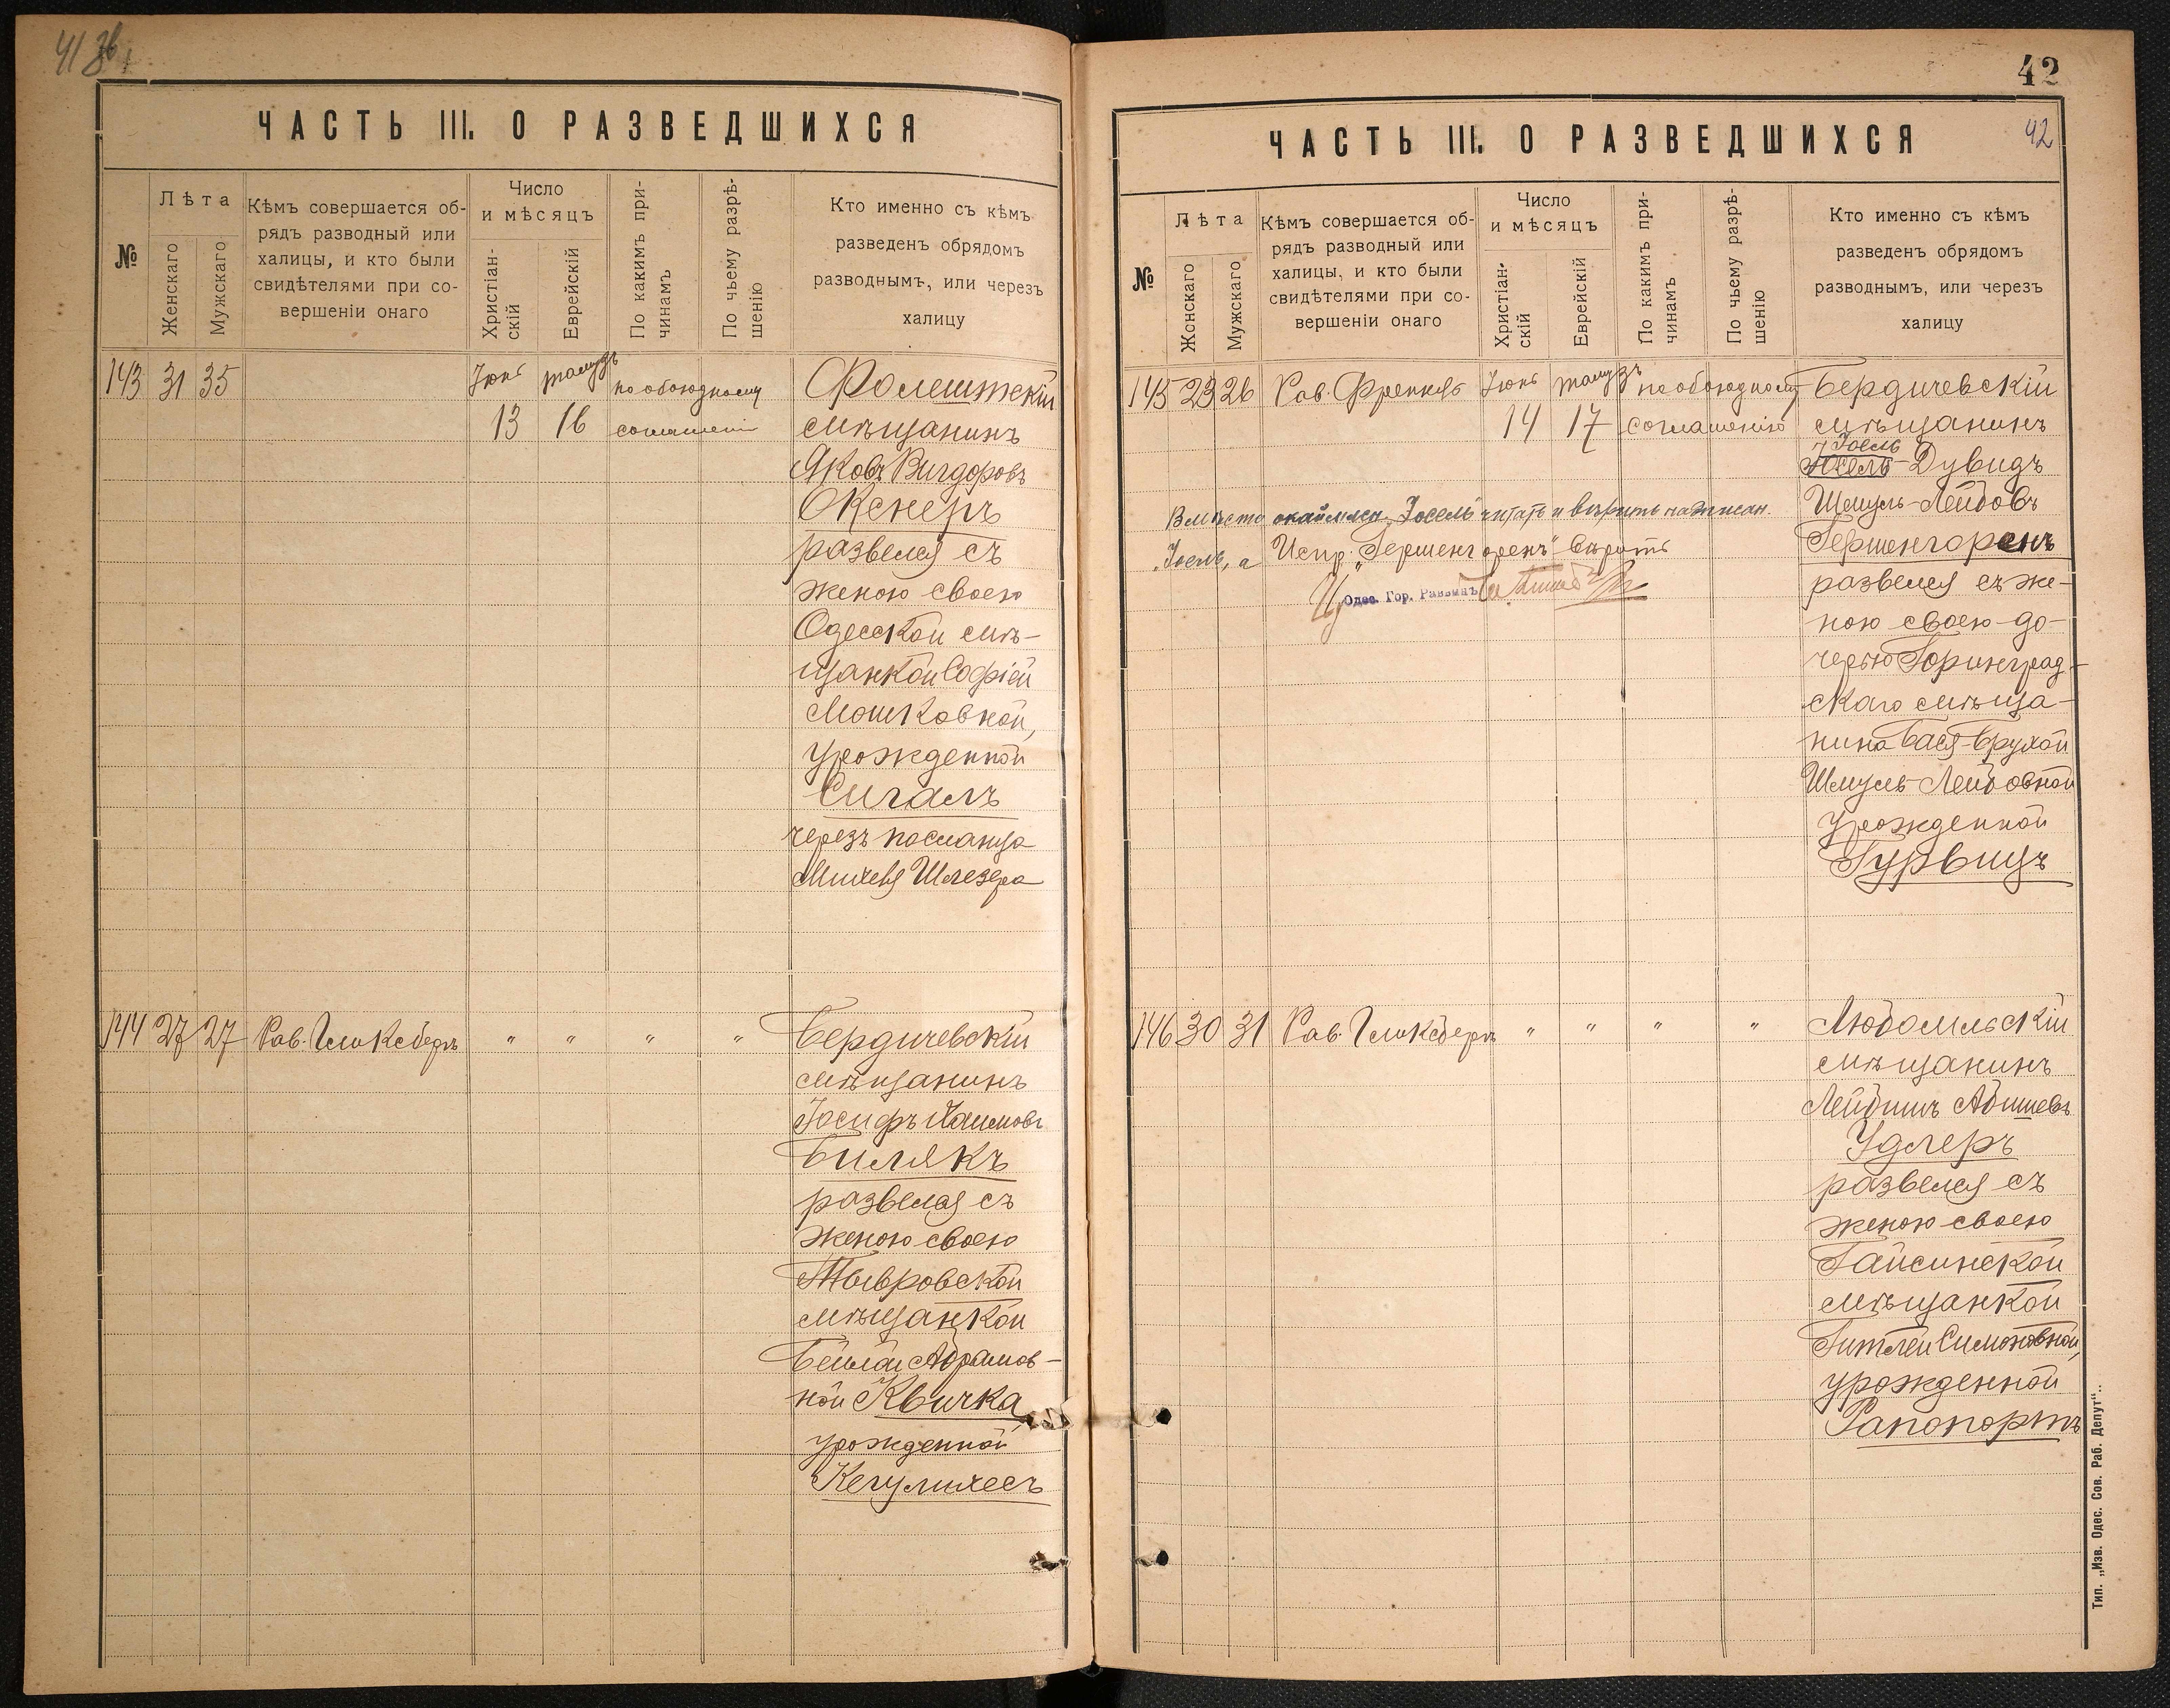 41 зв
ЧАСТЬ III. О РАЗВЕДШИХСЯ
№
Лѣта
Женскаго
Мужскаго
Кѣмъ совершается об-
рядъ разводный или
халицы, и кто были
свидѣтелями при со-
вершеніи онаго
Число
и мѣсяцъ
Христіан-
скій
Еврейскій
По какимъ при-
чинамъ
По чьему разрѣ-
шенію
Кто именно съ кѣмъ
разведенъ обрядомъ
разводнымъ, или черезъ
халицу
143 31 35 Юнь тамузъ по обоюдному
13 16 соглашенію
Фалештскій
мѣщанинъ
Яковъ Вигдоровъ
Окснеръ
развелся съ
женою своею
Одесской мѣ-
щанкой Софіей
Мошковной,
урожденной
Сигалъ
черезъ посланца
Михеля Шлезера
144 27 27 Рав. Гликсберъ " " " "
Бердичевскій
мѣщанинъ
Іосифъ Хаимовъ
Билякъ
развелся съ
женою своею
Тывровской
мѣщанкой
Бейлой Абрамов-
ной Квичка,
урожденной
Кегулихесъ
42
ЧАСТЬ III. О РАЗВЕДШИХСЯ
42
№
Лѣта
Жонскаго
Мужскаго
Кѣмъ совершается об-
рядъ разводный или
халицы, и кто были
свидѣтелями при со-
вершеніи онаго
Число
и мѣсяцъ
Христіан-
скій
Еврейскій
По какимъ при-
чинамъ
По чьему разрѣ-
шенію
Кто именно съ кѣмъ
разведенъ обрядомъ
разводнымъ, или черезъ
халицу
145 23 26 Рав. Френкель Юнь тамузъ по обоюдному
14 17 соглашенію
Бердичевскій
мѣщанинъ
Іоель
Іосель-Дувидъ
Шмуль-Лейбовъ
Гершенгоренъ
развелся съ же-
ною своею до-
черью Горинград-
скаго мѣща-
нина Бася-Брухой
Шмуль-Лейбовной
урожденной
Гурвицъ
Вмѣсто окаймлен. Іосель читать и вѣрить надписан.
„Іоель, а Испр. „Гершенгоренъ" вѣрить
Одес. Гор. Раввинъ
146 30 31 Рав. Гликсберъ " " " "
Любомльскій
мѣщанинъ
Лейбишъ Абишевъ
Удлеръ
развелся съ
женою своею
Гайсинской
мѣщанкой
Гитлей Симоновной,
урожденной
Рапопортъ
Тип. „Изв. Одес. Сов. Раб. Депут"..